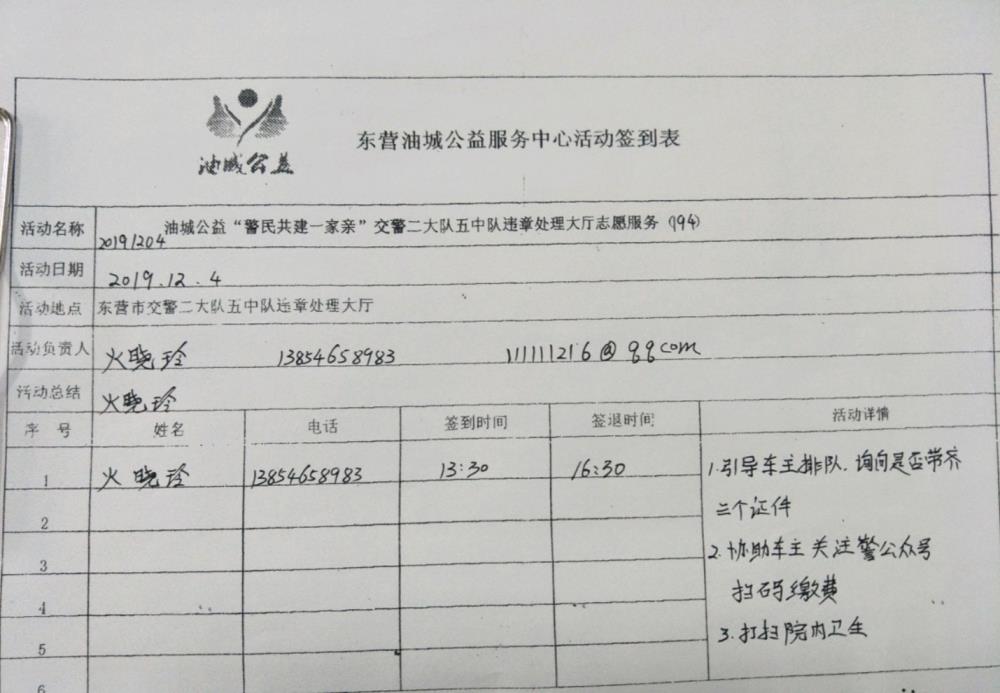 油城公益
东营油城公益服务中心活动签到表
活动名称 20191204 油城公益“警民共建一家亲”交警二大队五中队违章处理大厅志愿服务(194)
活动日期 2019.12.4
活动地点 东营市交警二大队五中队违章处理大厅
活动负责人 火晓玲 13854658983 111111216@qq.com
活动总结 火晓玲
序号 姓名 电话 签到时间 签退时间 活动详情
1 火晓玲 13854658983 13:30 16:30 1.引导车主排队.询问是否带齐
三个证件
2
3 2.协助车主关注警公众号
扫码缴费
4
5 3.打扫院内卫生
6